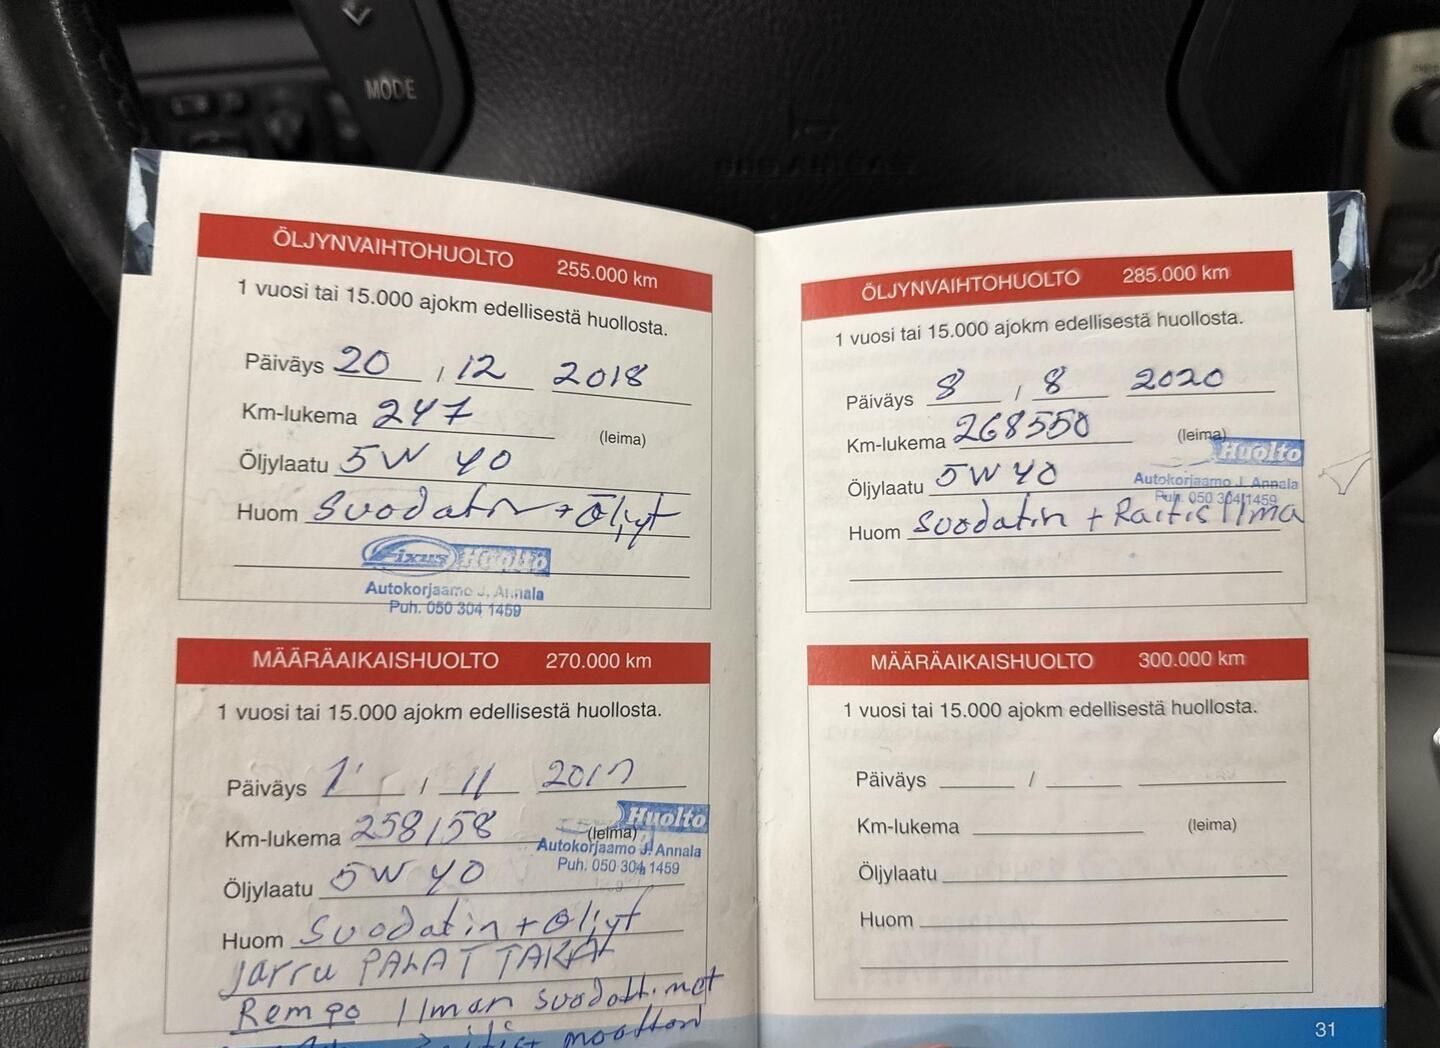 MODE
SRS AIRBAG
ÖLJYNVAIHTOHUOLTO 255.000 km
1 vuosi tai 15.000 ajokm edellisestä huollosta.
Päiväys 20 / 12 2018
Km-lukema 247
(leima)
Öljylaatu 5W 40
Huom Suodatin + Öljyt
Fixus Huolto
Autokorjaamo J. Annala
Puh. 050 304 1459
MÄÄRÄAIKAISHUOLTO 270.000 km
1 vuosi tai 15.000 ajokm edellisestä huollosta.
Päiväys 1 / 11 2019
Km-lukema 258158
(leima)
Huolto
Autokorjaamo J. Annala
Puh. 050 304 1459
Öljylaatu 5W 40
Huom Suodatin + Öljyt
Jarru PALAT TAKA
Rempo Ilman suodattimet
moottori
ÖLJYNVAIHTOHUOLTO 285.000 km
1 vuosi tai 15.000 ajokm edellisestä huollosta.
Päiväys 8 / 8 2020
Km-lukema 268550
(leima)
Huolto
Autokorjaamo J. Annala
Puh. 050 304 1459
Öljylaatu 5W 40
Huom Suodatin + Raitis Ilma
MÄÄRÄAIKAISHUOLTO 300.000 km
1 vuosi tai 15.000 ajokm edellisestä huollosta.
Päiväys /
Km-lukema
(leima)
Öljylaatu
Huom
31